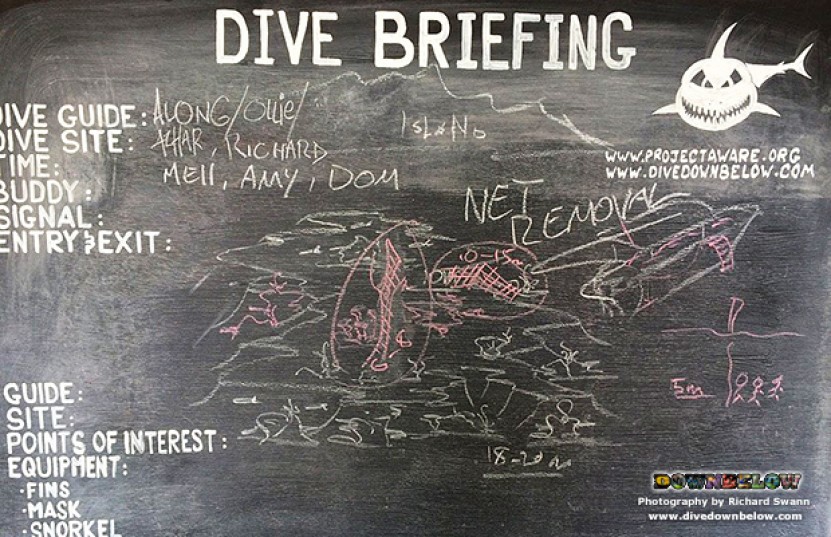 DIVE BRIEFING
DIVE GUIDE: ALONG/Ollie/
DIVE SITE: AZHAR, RICHARD
TIME: MELL, AMY, DOM
BUDDY:
SIGNAL:
ENTRY & EXIT:
ISLAND
WWW.PROJECTAWARE.ORG
WWW.DIVEDOWNBELOW.COM
NET
REMOVAL
10-15m
6-8
5m
18-20m
GUIDE:
SITE:
POINTS OF INTEREST:
EQUIPMENT:
·FINS
·MASK
·SNORKEL
DOWNBELOW
Photography by Richard Swann
www.divedownbelow.com